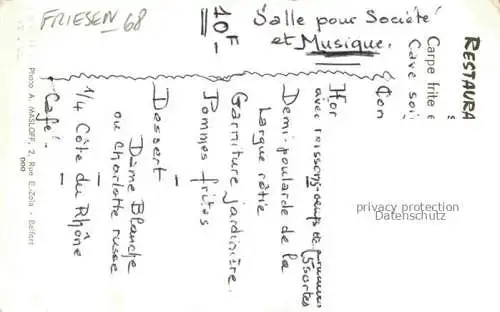 FRIESEN 68
10F
Salle pour Société
et Musique.
RESTAURA
Carpe frite e
Cave soi
Con
Hor
avec poissons, oeufs de
5 sortes
Demi-poularde de la
Largue rôtie
Garniture jardinière.
Pommes frites
Dessert
Dame Blanche
ou Charlotte russe
1/4 Côte du Rhône
Café.
Photo A. MASLOFF, 2, Rue E.-Zola - Belfort
privacy protection
Datenschutz